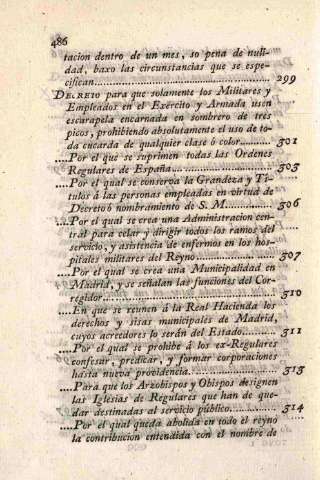 486
tacion dentro de un mes, so pena de nuli-
dad, baxo las circunstancias que se espe-
cifican........................................ 299
DECRETO para que solamente los Militares y
Empleados en el Exército y Armada usen
escarapela encarnada en sombrero de tres
picos, prohibiendo absolutamente el uso de to-
da cucarda de qualquier clase ó color......... 301
....Por el que se suprimen todas las Ordenes
Regulares de España......................... 303
....Por el qual se conserva la Grandeza y Tí-
tulos á las personas empleadas en virtud de
Decreto ó nombramiento de S. M............. 306
....Por el qual se crea una Administracion cen-
tral para celar y dirigir todos los ramos del
servicio, y asistencia de enfermos en los hos-
pitales militares del Reyno.................... 307
....Por el qual se crea una Municipalidad en
Madrid, y se señalan las funciones del Cor-
regidor........................................ 310
....En que se reunen á la Real Hacienda los
derechos y sisas municipales de Madrid,
cuyos acreedores lo serán del Estado.......... 311
....Por el qual se prohibe á los ex-Regulares
confesar, predicar, y formar corporaciones
hasta nueva providencia....................... 313
....Para que los Arzobispos y Obispos designen
las Iglesias de Regulares que han de que-
dar destinadas al servicio público............. 314
....Por el qual queda abolida en todo el reyno
la contribucion entendida con el nombre de